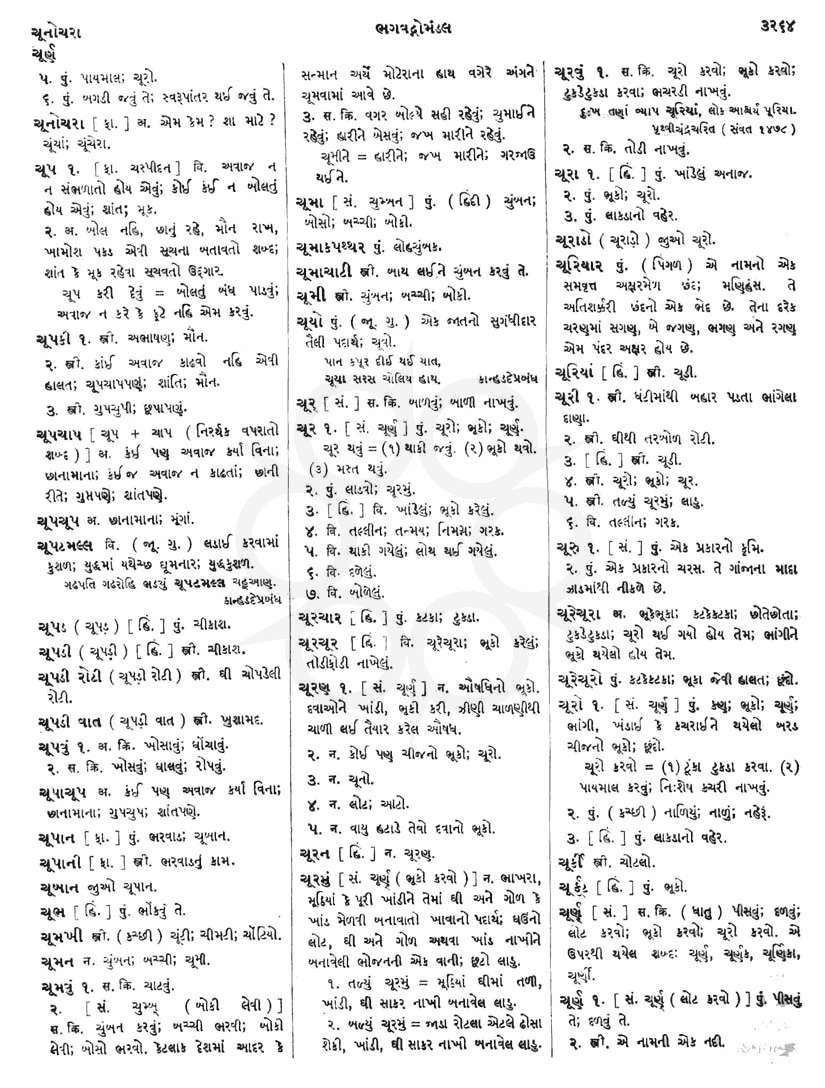 ચૂનોચરા
ભગવદ્ગોમંડલ
૩૨૬૪
ચૂર્ણ
૫. પું. પાયમાલ; ચૂરો.
૬. પું. બગડી જવું તે; સ્વરૂપાંતર થઈ જવું તે.
ચૂનોચરા [ ફા. ] અ. એમ કેમ? શા માટે?
ચૂંચાં; ચૂંચેરા.
ચૂપ ૧. [ ફા. ચરપીદન ] વિ. અવાજ ન
ન સંભળાતો હોય એવું; કોઈ કંઈ ન બોલતું
હોય એવું; શાંત; મૂક.
૨. અ. બોલ નહિ, છાનું રહે, મૌન રાખ,
ખામોશ પકડ એવી સૂચના બતાવતો શબ્દ;
શાંત કે મૂક રહેવા સૂચવતો ઉદ્દગાર.
ચૂપ કરી દેવું = બોલતું બંધ પાડવું;
અવાજ ન કરે કે ફૂટે નહિ એમ કરવું.
ચૂપકી ૧. સ્ત્રી. અભાષણ; મૌન.
૨. સ્ત્રી. કાંઈ અવાજ કાઢવો નહિ એવી
હાલત; ચૂપચાપપણું; શાંતિ; મૌન.
૩. સ્ત્રી. ગુપચુપી; છૂપાપણું.
ચૂપચાપ [ ચૂપ + ચાપ ( નિરર્થક વપરાતો
શબ્દ ) ] અ. કંઈ પણ અવાજ કર્યા વિના;
છાનામાના; કંઈ જ અવાજ ન કાઢતાં; છાની
રીતે; ગુપ્તપણે; શાંતપણે.
ચૂપચૂપ અ. છાનામાના; મૂંગાં.
ચૂપટમલ્લ વિ. ( જૂ. ગુ. ) લડાઈ કરવામાં
કુશળ; યુદ્ધમાં યથેચ્છ ઘૂમનાર; યુદ્ધકુશળ.
ગઢપતિ ગઢરોહિ ભડયું ચૂપટમલ્લ ચહૂઆણુ.
કાન્હડદેપ્રબંધ
ચૂપડ ( ચૂપડ઼ ) [ હિં. ] પું. ચીકાશ.
ચૂપડી ( ચૂપડ઼ી ) [ હિં. ] સ્ત્રી. ચીકાશ.
ચૂપડી રોટી ( ચૂપડ઼ી રોટી ) સ્ત્રી. ઘી ચોપડેલી
રોટી.
ચૂપડી વાત ( ચૂપડ઼ી વાત ) સ્ત્રી. ખુશામદ.
ચૂપવું ૧. અ. ક્રિ. ખોસાવું; ઘોંચાવું.
૨. સ. ક્રિ. ખોસવું; ઘાલવું; રોપવું.
ચૂપાચૂપ અ. કંઈ પણ અવાજ કર્યા વિના;
છાનામાના; ગુપચુપ; શાંતપણે.
ચૂપાન [ ફા. ] પું. ભરવાડ; ચૂબાન.
ચૂપાની [ ફા. ] સ્ત્રી. ભરવાડનું કામ.
ચૂબાન જુઓ ચૂપાન.
ચૂભ [ હિં. ] પું. ભોંકવું તે.
ચૂમખી સ્ત્રી. ( કચ્છી ) ચૂંટી; ચીમટી; ચોંટિયો.
ચૂમન ન. ચુંબન; બચ્ચી; ચૂમી.
ચૂમવું ૧. સ. ક્રિ. ચાટવું.
૨. [ સં. ચુમ્બ્ ( બોકી લેવી ) ]
સ. ક્રિ. ચુંબન કરવું; બચ્ચી ભરવી; બોકી
લેવી; બોસો ભરવો. કેટલાક દેશમાં આદર કે
સન્માન અર્થે મોટેરાના હાથ વગેરે અંગને
ચૂમવામાં આવે છે.
૩. સ. ક્રિ. વગર બોલ્યે સહી રહેવું; ચુમાઈને
રહેવું; હારીને બેસવું; જખ મારીને રહેવું.
ચૂમીને = હારીને; જખ મારીને; ગરજાઉ
થઈને.
ચૂમા [ સં. ચુમ્બન ] પું. ( હિંદી ) ચુંબન;
બોસો; બચ્ચી; બોકી.
ચૂમાકપથ્થર પું. લોહચુંબક.
ચૂમાચાટી સ્ત્રી. બાથ લઈને ચુંબન કરવું તે.
ચૂમી સ્ત્રી. ચુંબન; બચ્ચી; બોકી.
ચૂયો પું. ( જૂ. ગુ. ) એક જાતનો સુગંધીદાર
તેલી પદાર્થ; ચૂવો.
પાન કપૂર દીઈ થઈ યાત,
ચૂયા સરસ ચોલિય હાથ. કાન્હડદેપ્રબંધ
ચૂર્ [ સં. ] સ. ક્રિ. બાળવું; બાળી નાખવું.
ચૂર ૧. [ સં. ચૂર્ણ ] પું. ચૂરો; ભૂકો; ચૂર્ણ.
ચૂર થવું = (૧) થાકી જવું. (૨) ભૂકો થવો.
(૩) મસ્ત થવું.
૨. પું. લાડવો; ચૂરમું.
૩. [ હિં. ] વિ. ખાંડેલું; ભૂકો કરેલું.
૪. વિ. તલ્લીન; તન્મય; નિમગ્ન; ગરક.
૫. વિ. થાકી ગયેલું; લોથ થઈ ગયેલું.
૬. વિ. દળેલું.
૭. વિ. બોળેલું.
ચૂરચાર [ હિં. ] પું. કટકા; ટુકડા.
ચૂરચૂર [ હિં. ] વિ. ચૂરેચૂરા; ભૂકો કરેલું;
તોડીફોડી નાખેલું.
ચૂરણ ૧. [ સં. ચૂર્ણ ] ન. ઔષધિનો ભૂકો.
દવાઓને ખાંડી, ભૂકી કરી, ઝીણી ચાળણીથી
ચાળી લઈ તૈયાર કરેલ ઔષધ.
૨. ન. કોઈ પણ ચીજનો ભૂકો; ચૂરો.
૩. ન. ચૂનો.
૪. ન. લોટ; આટો.
૫. ન. વાયુ હટાડે તેવો દવાનો ભૂકો.
ચૂરન [ હિં. ] ન. ચૂરણ.
ચૂરમું [ સં. ચૂર્ણ્ ( ભૂકો કરવો ) ] ન. ભાખરા,
મૂઠિયાં કે પૂરી ખાંડીને તેમાં ઘી અને ગોળ કે
ખાંડ મેળવી બનાવાતો ખાવાનો પદાર્થ; ઘઉંનો
લોટ, ઘી અને ગોળ અથવા ખાંડ નાખીને
બનાવેલી ભોજનની એક વાની; છૂટો લાડુ.
૧. તળ્યું ચૂરમું = મૂઠિયાં ઘીમાં તળી,
ખાંડી, ઘી સાકર નાખી બનાવેલ લાડુ.
૨. બળ્યું ચૂરમું = જાડા રોટલા એટલે ઢોસા
શેકી, ખાંડી, ઘી સાકર નાખી બનાવેલ લાડુ.
ચૂરવું ૧. સ. ક્રિ. ચૂરો કરવો; ભૂકો કરવો;
ટુકડેટુકડા કરવા; ભચરડી નાખવું.
દુઃખ તણાં વ્યાપ ચૂરિયાં, લોક આશ્ચર્ય પૂરિયા.
પૃથ્વીચંદ્રચરિત ( સંવત ૧૪૭૮ )
૨. સ. ક્રિ. તોડી નાખવું.
ચૂરા ૧. [ હિં. ] પું. ખાંડેલું અનાજ.
૨. પું. ભૂકો; ચૂરો.
૩. પું. લાકડાનો વહેર.
ચૂરાડો ( ચૂરાડ઼ો ) જુઓ ચૂરો.
ચૂરિયાર પું. ( પિંગળ ) એ નામનો એક
સમવૃત્ત અક્ષરમેળ છંદ; મણિહંસ. તે
અતિશર્ક્કરી છંદનો એક ભેદ છે. તેના દરેક
ચરણમાં સગણ, બે જગણ, ભગણ અને રગણ
એમ પંદર અક્ષર હોય છે.
ચૂરિયાં [ હિં. ] સ્ત્રી. ચૂડી.
ચૂરી ૧. સ્ત્રી. ઘંટીમાંથી બહાર પડતા ભાંગેલા
દાણા.
૨. સ્ત્રી. ઘીથી તરબોળ રોટી.
૩. [ હિં. ] સ્ત્રી. ચૂડી.
૪. સ્ત્રી. ચૂરો; ભૂકો; ચૂર.
૫. સ્ત્રી. તળ્યું ચૂરમું; લાડુ.
૬. વિ. તલ્લીન; ગરક.
ચૂરુ ૧. [ સં. ] પું. એક પ્રકારનો કૃમિ.
૨. પું. એક પ્રકારનો ચરસ. તે ગાંજાના માદા
ઝાડમાંથી નીકળે છે.
ચૂરેચૂરા અ. ભૂકેભૂકા; કટકેકટકા; છોતેછોતા;
ટુકડેટુકડા; ચૂરો થઈ ગયો હોય તેમ; ભાંગીને
ભૂકો થયેલો હોય તેમ.
ચૂરેચૂરો પું. કટકેકટકા; ભૂકા જેવી હાલત; છૂંદો.
ચૂરો ૧. [ સં. ચૂર્ણ ] પું. કણ; ભૂકો; ચૂર્ણ;
ભાંગી, ખંડાઈ કે કચરાઈને થયેલો બરડ
ચીજનો ભૂકો; છૂંદો.
ચૂરો કરવો = (૧) ટૂંકા ટુકડા કરવા. (૨)
પાયમાલ કરવું; નિઃશેષ કચરી નાખવું.
૨. પું. ( કચ્છી ) નાળિયું; નાળું; નહેરું.
૩. [ હિં. ] પું. લાકડાનો વહેર.
ચૂર્કી સ્ત્રી. ચોટલો.
ચૂર્કટ [ હિં. ] પું. ભૂકો.
ચૂર્ણ્ [ સં. ] સ. ક્રિ. ( ધાતુ ) પીસવું; દળવું;
લોટ કરવો; ભૂકો કરવો; ચૂરો કરવો. એ
ઉપરથી થયેલ શબ્દઃ ચૂર્ણ, ચૂર્ણક, ચૂર્ણિકા,
ચૂર્ણી.
ચૂર્ણ ૧. [ સં. ચૂર્ણ્ ( લોટ કરવો ) ] પું. પીસવું
તે; દળવું તે.
૨. સ્ત્રી. એ નામની એક નદી.